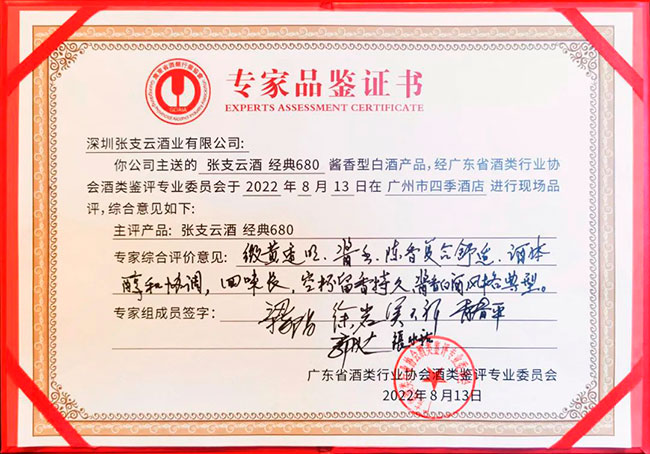 专家品鉴证书
EXPERTS ASSESSMENT CERTIFICATE
深圳张支云酒业有限公司:
你公司主送的 张支云酒 经典680 酱香型白酒产品,经广东省酒类行业协
会酒类鉴评专业委员会于 2022 年 8 月 13 日在 广州市四季酒店 进行现场品
评,综合意见如下:
主评产品: 张支云酒 经典680
专家综合评价意见: 微黄透明、酱香、陈香复合舒适、酒体
醇和协调,回味长,空杯留香持久,酱香白酒风格典型。
专家组成员签字:
徐岩
广东省酒类行业协会酒类鉴评专业委员会
2022年8月13日